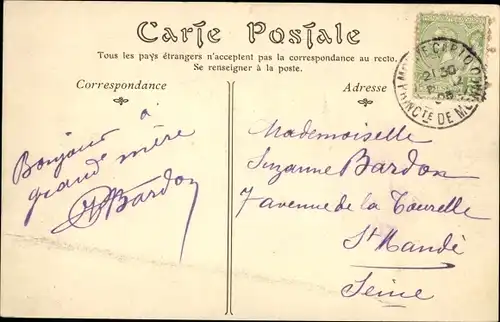 Carte Postale
Tous les pays étrangers n'acceptent pas la correspondance au recto.
Se renseigner à la poste.
Correspondance
Adresse
Bonjour à
grand mère
Bardon
Mademoiselle
Suzanne Bardon
7 avenue de la Tourelle
St Mandé
Seine
21 30
PTÉ DE M